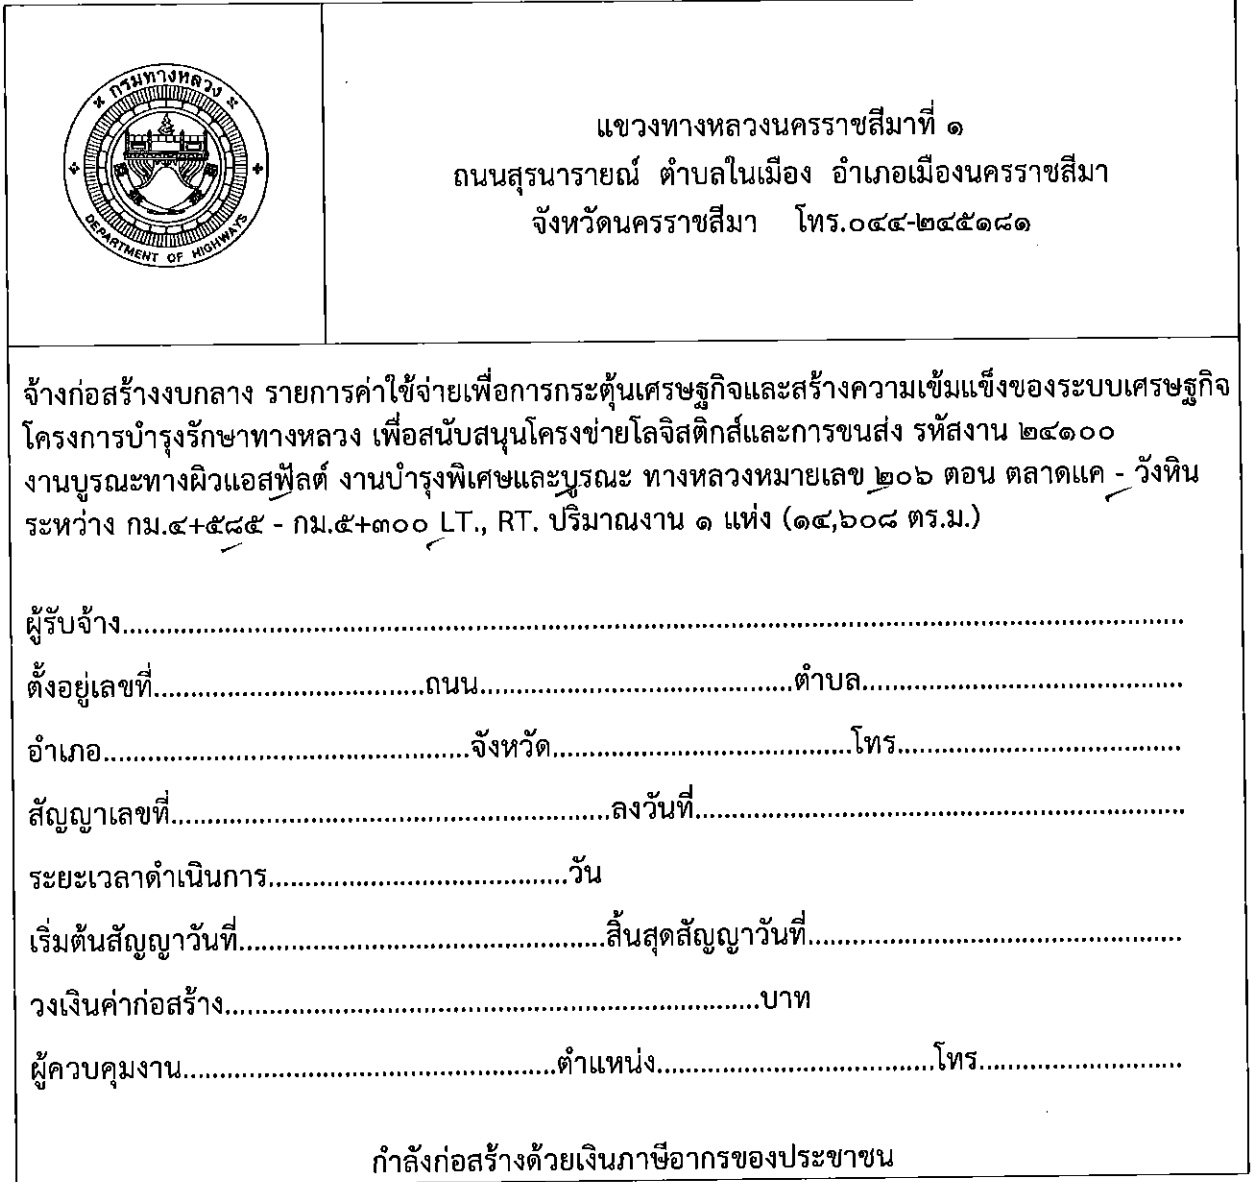 กรมทางหลวง
DEPARTMENT OF HIGHWAYS
แขวงทางหลวงนครราชสีมาที่ ๑
ถนนสุรนารายณ์ ตำบลในเมือง อำเภอเมืองนครราชสีมา
จังหวัดนครราชสีมา โทร.๐๔๔-๒๔๕๑๘๑
จ้างก่อสร้างงบกลาง รายการค่าใช้จ่ายเพื่อการกระตุ้นเศรษฐกิจและสร้างความเข้มแข็งของระบบเศรษฐกิจ
โครงการบำรุงรักษาทางหลวง เพื่อสนับสนุนโครงข่ายโลจิสติกส์และการขนส่ง รหัสงาน ๒๔๑๐๐
งานบูรณะทางผิวแอสฟัลต์ งานบำรุงพิเศษและบูรณะ ทางหลวงหมายเลข ๒๐๖ ตอน ตลาดแค - วังหิน
ระหว่าง กม.๔+๕๘๕ - กม.๕+๓๐๐ LT., RT. ปริมาณงาน ๑ แห่ง (๑๔,๖๐๘ ตร.ม.)
ผู้รับจ้าง........................................................................................................
ตั้งอยู่เลขที่....................................ถนน..........................................ตำบล...........................................
อำเภอ.................................................จังหวัด........................................โทร......................................
สัญญาเลขที่...........................................................ลงวันที่..................................................................
ระยะเวลาดำเนินการ........................................วัน
เริ่มต้นสัญญาวันที่.................................................สิ้นสุดสัญญาวันที่..................................................
วงเงินค่าก่อสร้าง........................................................................บาท
ผู้ควบคุมงาน..................................................ตำแหน่ง.....................................โทร...........................
กำลังก่อสร้างด้วยเงินภาษีอากรของประชาชน